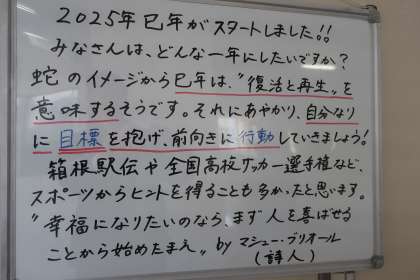 2025年巳年がスタートしました!!
みなさんは、どんな一年にしたいですか?
蛇のイメージから巳年は、〝復活と再生〟を
意味するそうです。それにあやかり、自分なり
に目標を抱げ、前向きに行動していきましょう!
箱根駅伝や全国高校サッカー選手権など、
スポーツからヒントを得ることも多かったと思います。
〝幸福になりたいのなら、まず人を喜ばせる
ことから始めたまえ〟by マシュー・プリオール
(詩人)